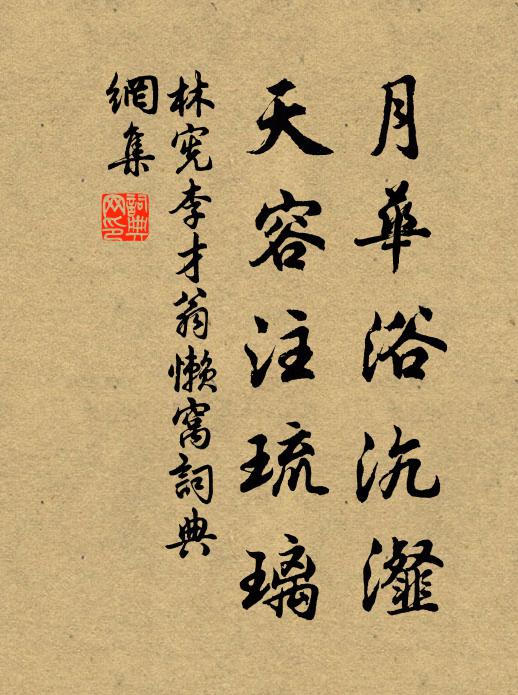 月華浴沆瀣
天容注琉璃
林宪李才翁懒窝詞典
網集
詞典
网印